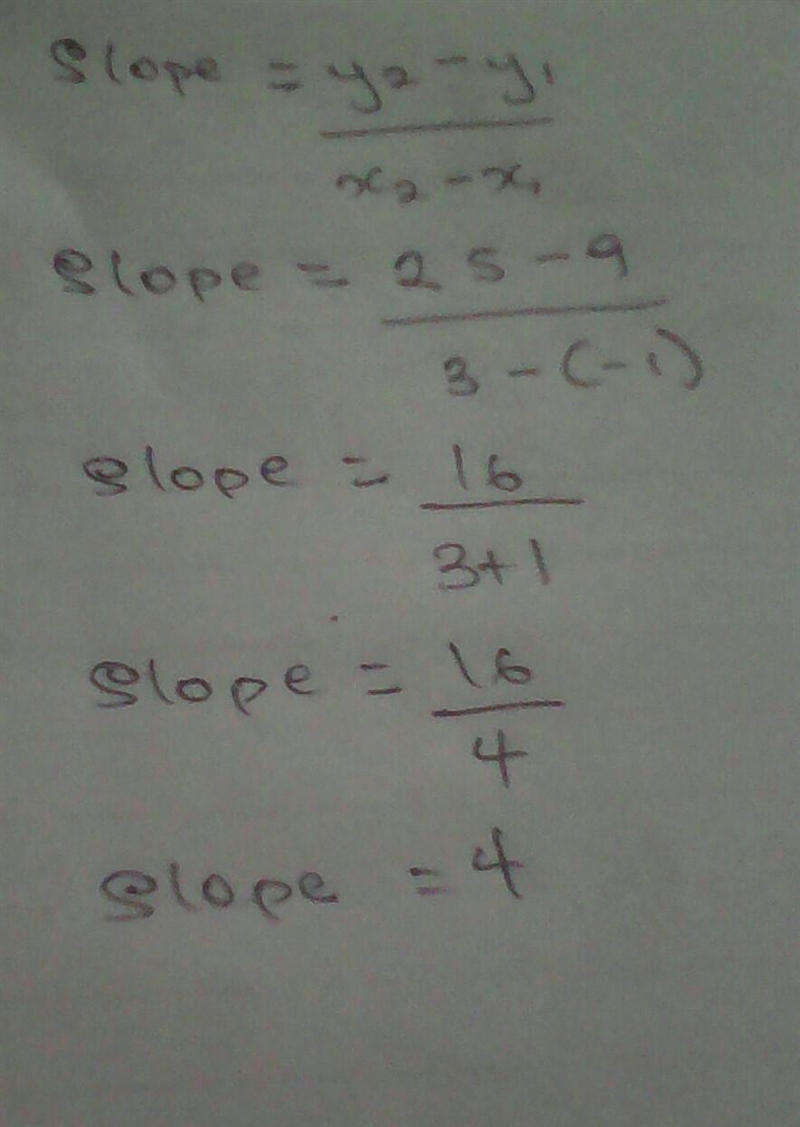 Slope = y2 - y1
x2 - x1
Slope = 25 - 9
3 - (-1)
Slope = 16
3+1
Slope = 16
4
Slope = 4